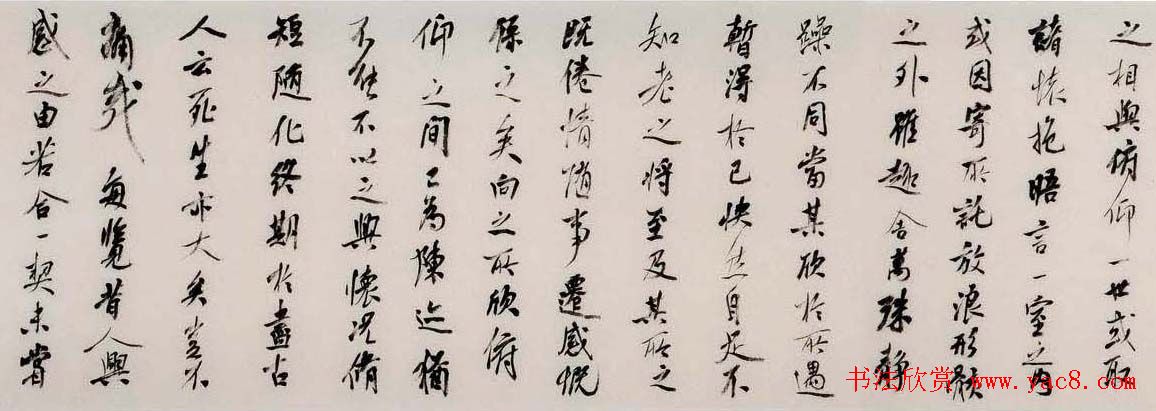 之相與俯仰一世或取
諸懷抱晤言一室之內
或因寄所託放浪形骸
之外雖趣舍萬殊静
躁不同當其欣於所遇
暫得於己快然自足不
知老之將至及其所之
既倦情隨事遷感慨
係之矣向之所欣俯
仰之間已為陳迹猶
不能不以之興懷況脩
短隨化終期於盡古
人云死生亦大矣豈不
痛哉每覽昔人興
感之由若合一契未嘗
书法欣赏 www.yac8.com